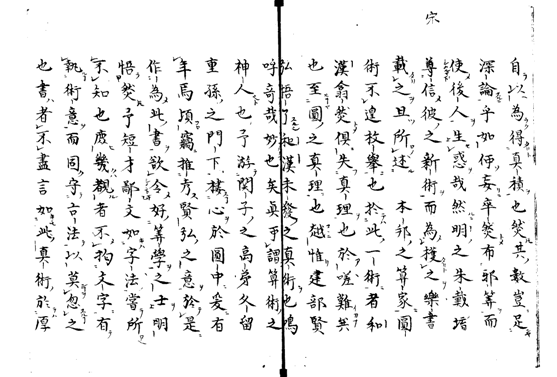 宗
自以爲得真積也㷼其數豈足
深論乎如便妄率㷼布邪筭而
使後人生惑哉然明之朱載堉
尊信彼之新術而爲授之樂書
載之且所述 本邦之筭家圓
術不遑枚舉也於此一術者和
漢翕㷼俱失真理也於嗟難矣
也至圓之真理也越惟建部賢
弘悟了和漢未發之真術也嗚
呼奇哉妙也矣真可謂筭術之
神人也予游関子之高弟久留
重孫之門下棲心於圓中爰有
年焉頃竊推考賢弘之意於是
作爲此書欲令好筭學之士明
悟㷼予短才鄙文如字法當所
不知也庶幾觀者不拘文字有
執術意而固守古法以莫忽之
也書者不盡言如此真術於厚